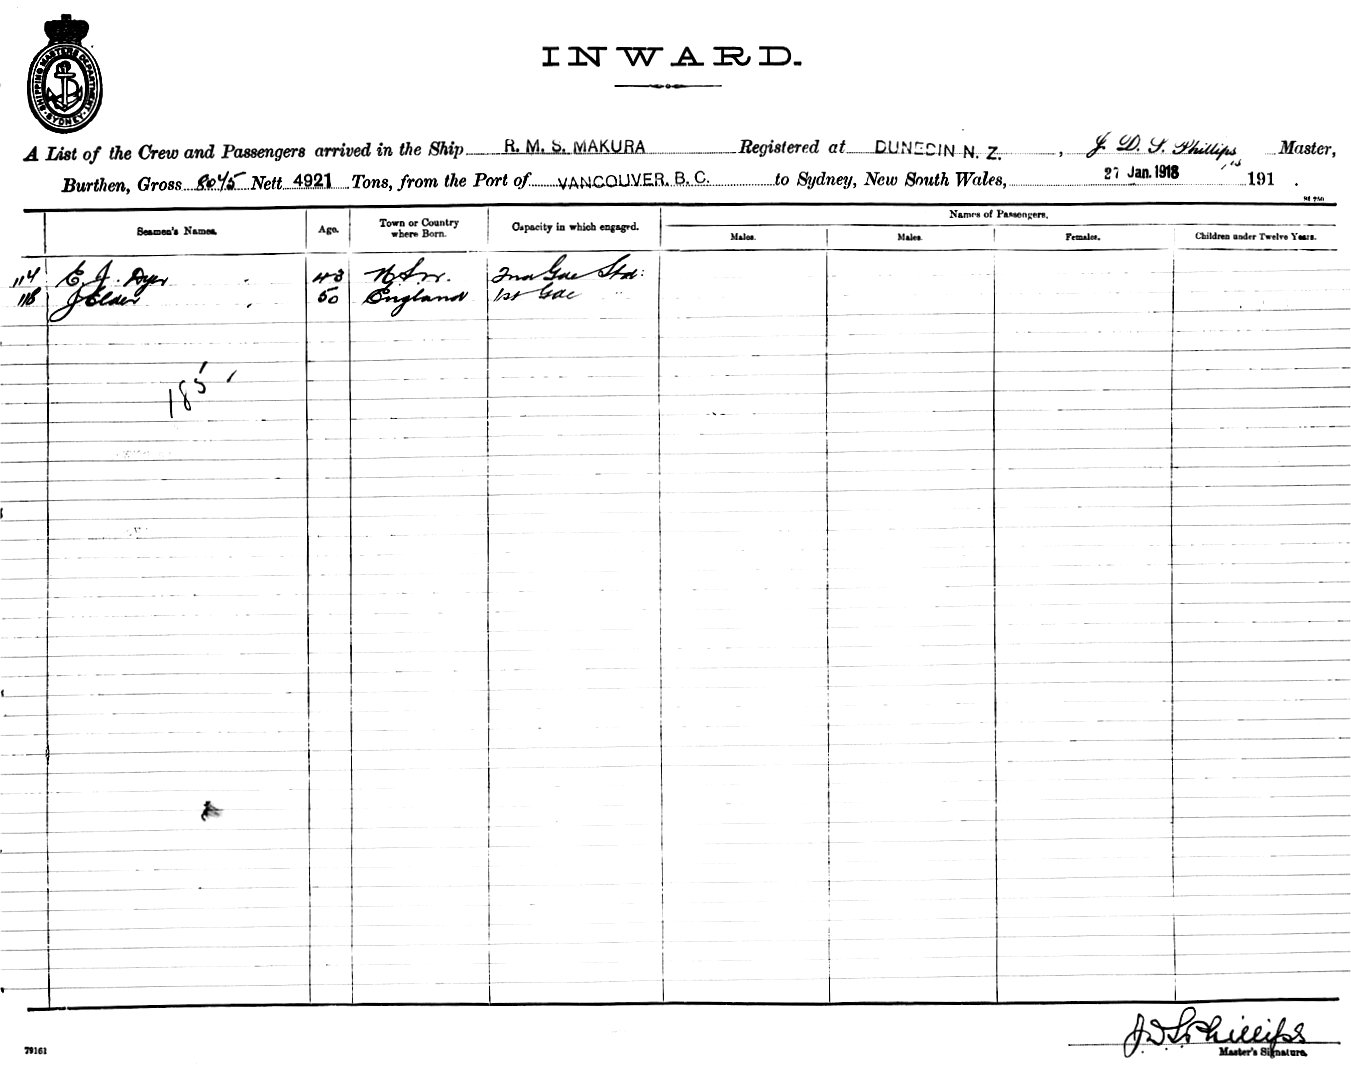 SHIPPING MASTERS DEPARTMENT SYDNEY
INWARD.
A List of the Crew and Passengers arrived in the Ship R. M. S. MAKURA Registered at DUNEDIN N. Z. , J. D. S. Phillips Master,
Burthen, Gross 8045 Nett 4921 Tons, from the Port of VANCOUVER, B. C. to Sydney, New South Wales, 27 Jan. 1918 191 .
Names of Passengers.
Seamen's Names. Age. Town or Country where Born. Capacity in which engaged. Males. Males. Females. Children under Twelve Years.
114 E. J. Dyer 43 N.S.W. 2nd Gde Std:
118 J Elder 50 England 1st Gde "
185
J D S Phillips
Master's Signature.
79161